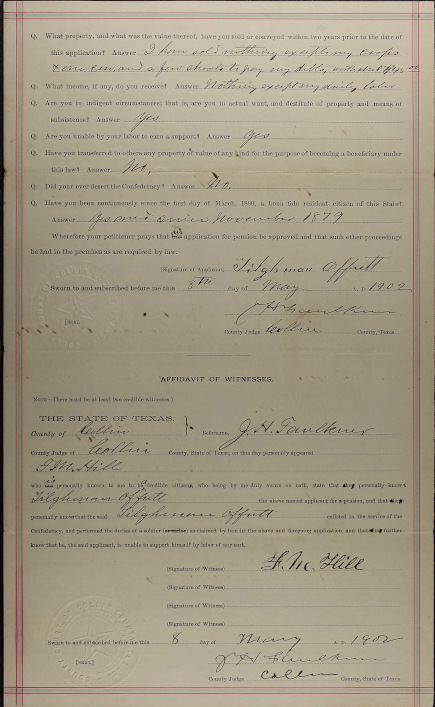 Q. What property, and what was the value thereof, have you sold or conveyed within two years prior to the date of
this application? Answer I have sold nothing except my crops
& one cow, and a few shoats to pay my debts,
Q. What income, if any, do you receive? Answer Nothing except my daily labor
Q. Are you in indigent circumstances; that is, are you in actual want, and destitute of property and means of
subsistence? Answer Yes
Q. Are you unable by your labor to earn a support? Answer Yes
Q. Have you transferred to others any property of value of any kind for the purpose of becoming a beneficiary under
this law? Answer No.
Q. Did you ever desert the Confederacy? Answer No.
Q. Have you been continuously since the first day of March, 1880, a bona fide resident citizen of this State?
Answer Yes and since November 1879
Wherefore your petitioner prays that his application for pension be approved and that such other proceedings
be had in the premises as are required by law.
(Signature of Applicant) Tilghman Offutt
Sworn to and subscribed before me this 8th day of May A. D. 1902
J H Faulkner
[SEAL] County Judge Collin County, Texas.
AFFIDAVIT OF WITNESSES.
NOTE—There must be at least two credible witnesses.)
THE STATE OF TEXAS,
County of Collin } Before me, J. H. Faulkner
County Judge of Collin County, State of Texas, on this day personally appeared
F. M. Hill
who is personally known to me to a credible citizen, who being by me duly sworn on oath, state that personally knows
Tilghman Offutt the above named applicant for a pension, and that
personally know that the said Tilghman Offutt enlisted in the service of the
Confederacy, and performed the duties of a soldier as claimed by him in the above and foregoing application, and that further
know that he, the said applicant, is unable to support himself by labor of any sort.
(Signature of Witness) F. M. Hill
(Signature of Witness)
(Signature of Witness)
(Signature of Witness)
Sworn to and subscribed before me this 8 day of May A. D. 1902
J H Faulkner
[SEAL] County Judge Collin County, State of Texas